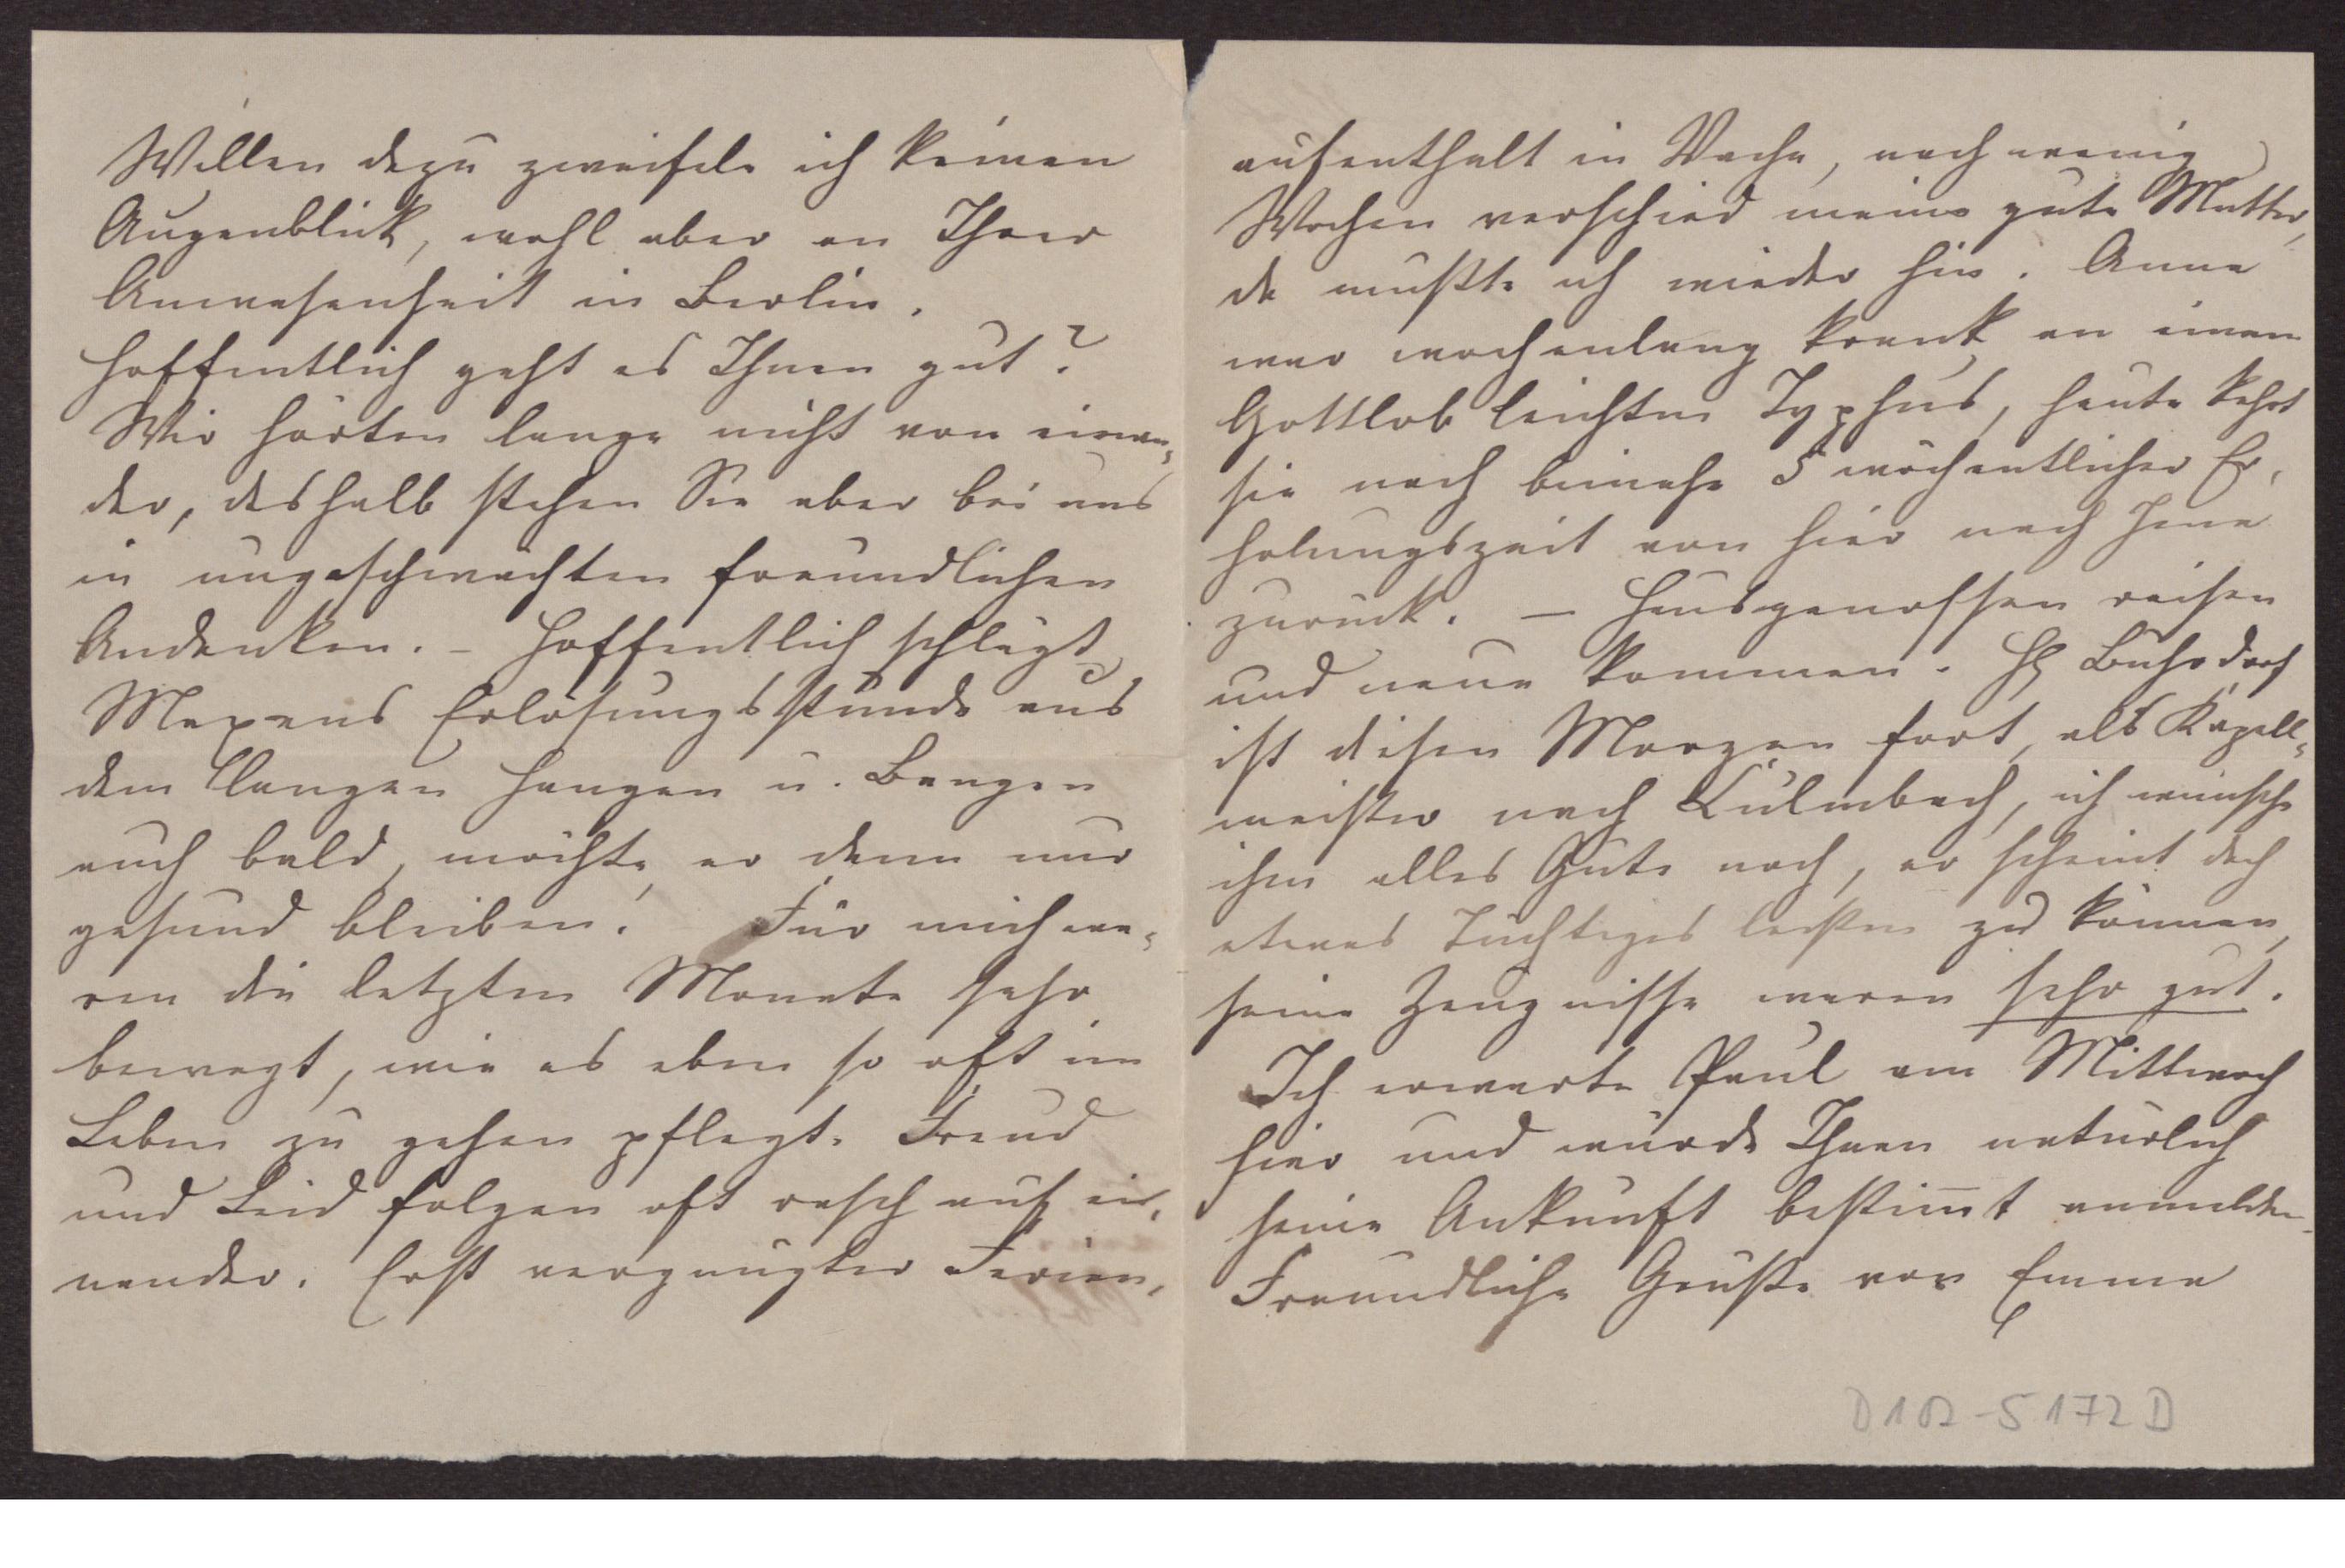 Willen dazu zweifele ich keinen
Augenblick, wohl aber an Ihrer
Anwesenheit in Berlin.
Hoffentlich geht es Ihnen gut?
Wir hörten lange nicht von einan-
der, deshalb stehen Sie aber bei uns
in ungeschwächten freundlichen
Andenken. – Hoffentlich schlägt
Maxens Erlösungsstunde aus
dem langen Hangen u. Bangen
auch bald, möchte er denn nur
gesund bleiben! Für mich wa-
ren die letzten Monate sehr
bewegt, wie es eben so oft im
Leben zu gehen pflegt. Freud
und Leid folgen oft rasch auf ei-
nander. Erst vergnügter Ferien-
aufenthalt in Vacha, nach wenig
Wochen verschied meine gute Mutter,
da mußte ich wieder hin. Anna
war wochenlang krank an einem
Gottlob leichten Typhus, heute kehrt
sie nach beinahe 5 wöchentlicher Er-
holungszeit von hier nach Jena
zurück. – Hausgenossen reisen
und neue kommen. H Buhsdorf
ist diesen Morgen fort, als Kapell-
meister nach Culmbach, ich wünsche
ihm alles Gute noch, er scheint doch
etwas Tüchtiges leisten zu können,
seine Zeugnisse waren sehr gut.
Ich erwarte Paul am Mittwoch
hier und würde Ihnen natürlich
seine Ankunft bestim̅t anmelden.
Freundliche Grüße von Emma
D 102 - S 172 D